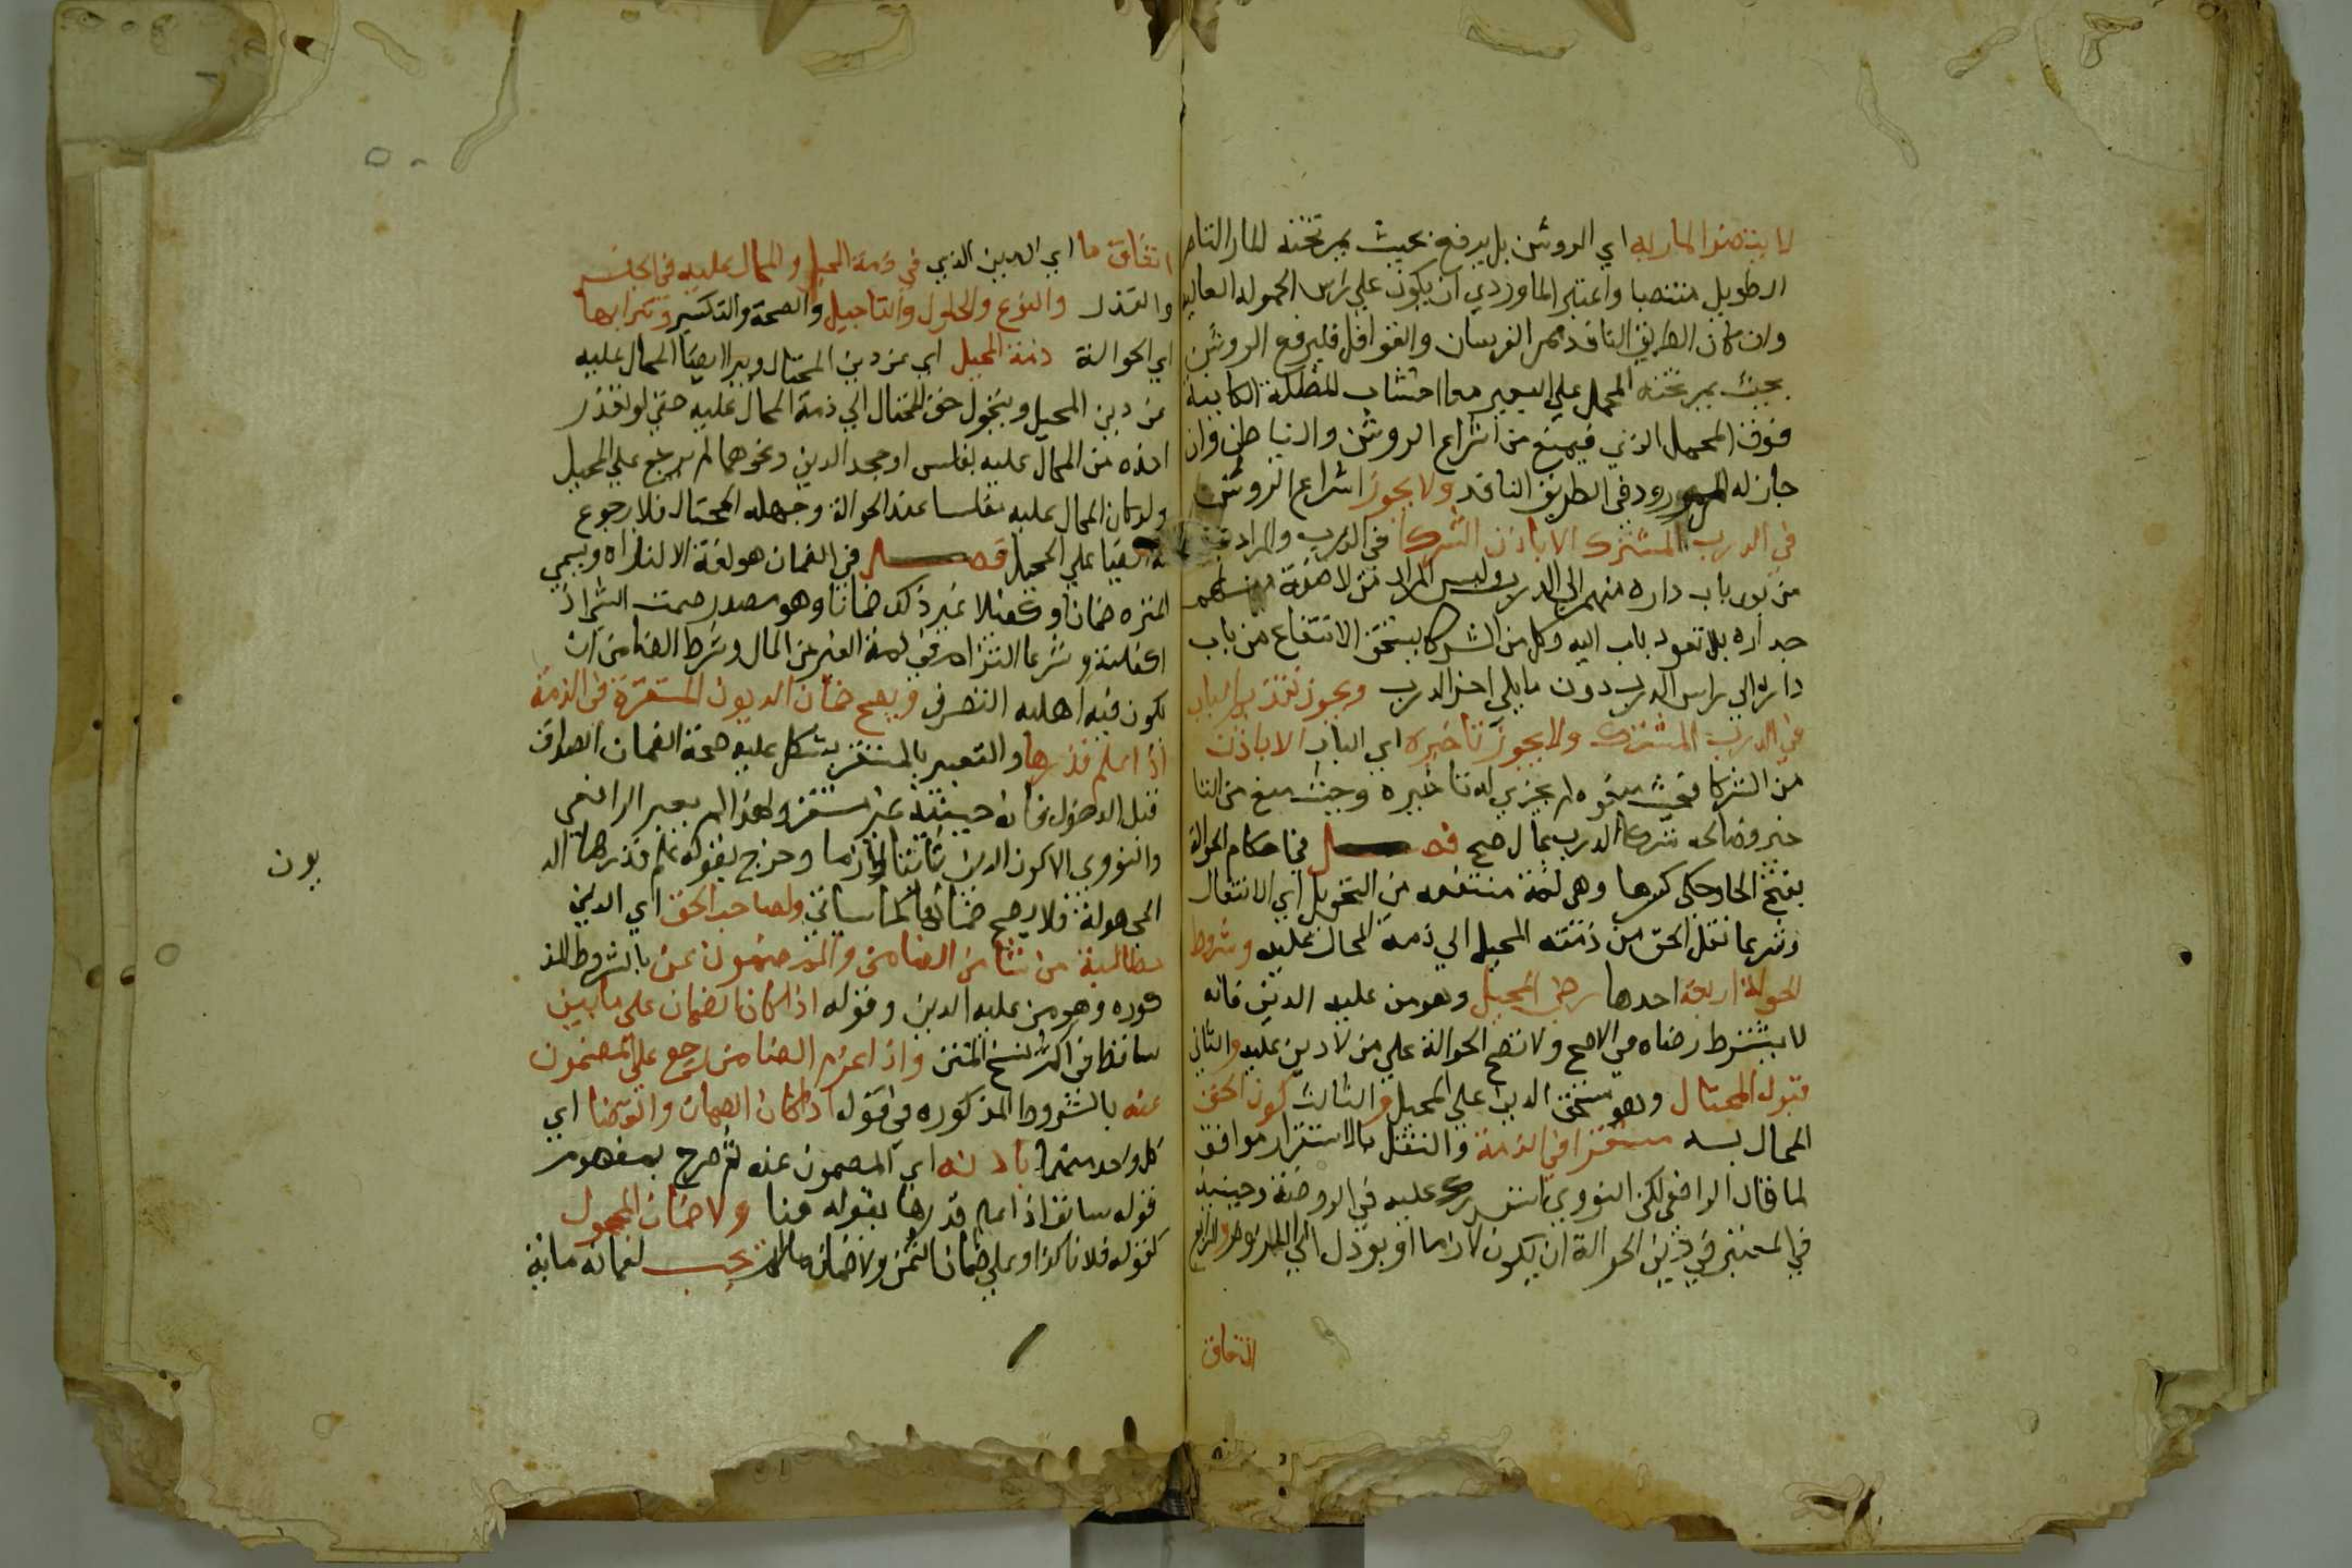 لا يتضرر المار به اي الروشن بل يرفع بحيث يمر تحته المار التام
الطويل منتصبا واعتبر الماوردي ان يكون علي راس الحمولة العالية
وان كان الطريق النافذ ممر الفرسان والقوافل فليرفع الروشن
بحيث يمر تحته المحمل علي البعير مع اخشاب المظلة الكاينة
فوق المحمل الذي فيمنع من اشراع الروشن والساباط وان
جاز له المرور في الطريق النافذ ولا يجوز اشراع الروشن
في الدرب المشترك الا باذن الشركا في الدرب والمراد
من نفد باب داره منهم الي الدرب وليس المراد من لاصقه منهم
جداره بلا نفوذ باب اليه وكل من الشركا يستحق الانتفاع من باب
داره الي راس الدرب دون ما يلي اخر الدرب ويجوز تقديم الباب
في الدرب المشترك ولا يجوز تاخيره اي الباب الا باذن
من الشركا فحيث منعوه لم يجز له تاخيره وحيث منع من التا
خير وصالح شركا الدرب بمال صح فصل في احكام الحوالة
بفتح الحا وحكي كسرها وهي لغة منتقلة من التحويل اي الانتقال
وشرعا نقل الحق من ذمته المحيل الي ذمة المحال عليه وشروط
الحوالة اربعة احدها رضي المحيل وهو من عليه الدين فانه
لا يشترط رضاه في الاصح ولا تصح الحوالة علي من لا دين عليه والثاني
قبول المحتال وهو مستحق الدين علي المحيل والثالث كون الحق
المحال به مستقرا في الذمة والتقيد بالاستقرار موافق
لما قال الرافعي لكن النووي استدرك عليه في الروضة وحينيذ
فالمعتبر في دين الحوالة ان يكون لازما او يوول الي اللزوم والرابع
اتفاق
اتفاق ما اي الدين الذي في ذمة المحيل والمحال عليه في الجنس
والقدر والنوع والحلول والتاجيل والصحة والتكسير وتبرا بها
اي الحوالة ذمة المحيل اي عن دين المحتال ويبرا ايضا المحال عليه
عن دين المحيل ويتحول حق المحتال الي ذمة المحال عليه حتي لو تعذر
اخذه من المحال عليه بفلس او جحد الدين ونحوهما لم يرجع علي المحيل
ولو كان المحال عليه مفلسا عند الحوالة وجهله المحتال فلا رجوع
له ايضا علي المحيل فصل في الضمان هو لغة الالتزام ويسمي
ملتزمه ضمانا وكفيلا غير ذلك ضمانا وهو مصدر ضمنت الشي اذ
اكفلته وشرعا التزام في ذمة الغير من المال وشرط الضامن ان
يكون فيه اهليه التصرف ويصح ضمان الديون المستقرة في الذمة
اذا علم قدرها والتعبير بالمستقر يشكل عليه صحة الضمان الصداق
قبل الدخول فانه حينيذ غير مستقر ولهذا لم يعبر الرافعي
والنووي الا كون الدين ثابتا لازما وخرج بقوله علم قدرها الد
يون
المجهولة فلا يصح ضمانها كما سياتي ولصاحب الحق اي الدين
مطالبة من شا من الضامن والمضمون عنه بالشروط المذ
كوره وهو من عليه الدين وقوله اذا كان الضمان علي ما بين
ساقط في اكثر نسخ المتن واذا غرم الضامن رجع علي المضمون
عنه بالشروط المذكوره في قوله اذا كان الضمان والقضا اي
كل واحد منهما باذنه اي المضمون عنه ثم صرح بمفهوم
قوله سابقا اذا علم قدرها بقوله هنا ولا ضمان المجهول
كقوله فلانا كذا وعلي ضمان الثمن ولا ضمان ما لم يجب لضمانه ماية